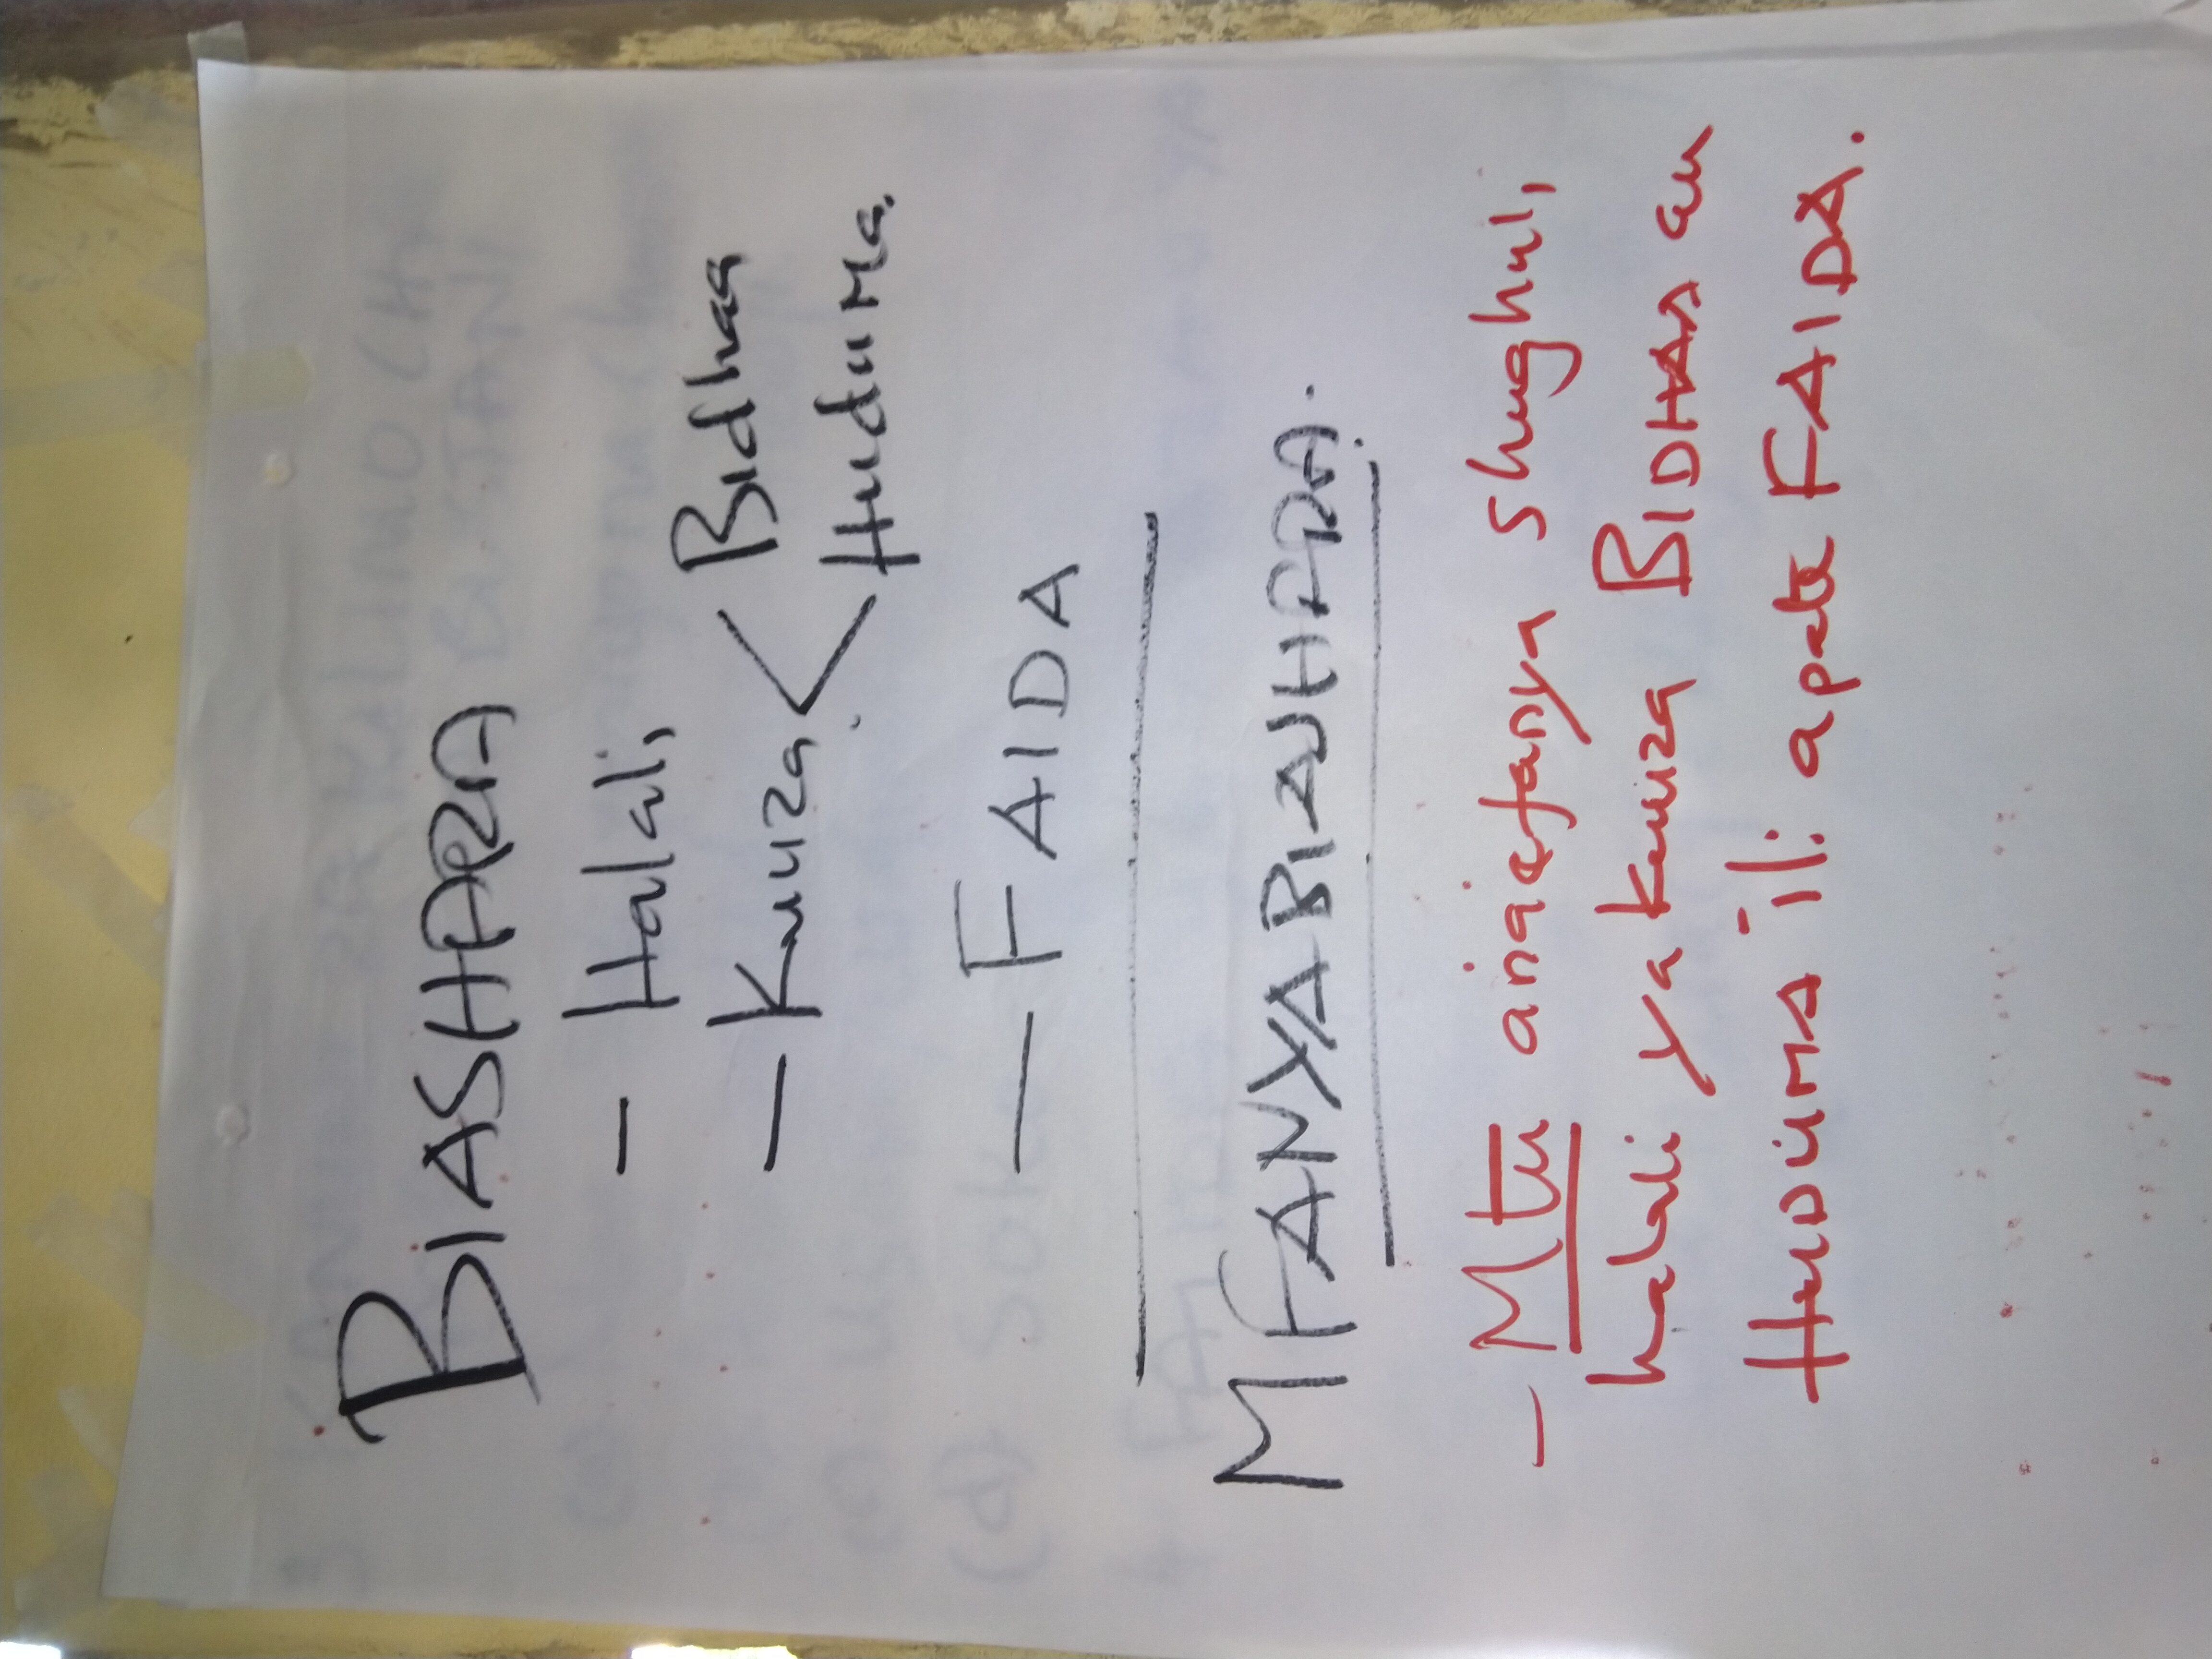 BIASHARA
- Halali,
- Kuuza < Bidhaa
Huduma.
- FAIDA
MFANYABIASHARA.
- Mtu anaefanya shughuli,
halali ya kuuza BIDHAA au
HUDUMA ili apate FAIDA.